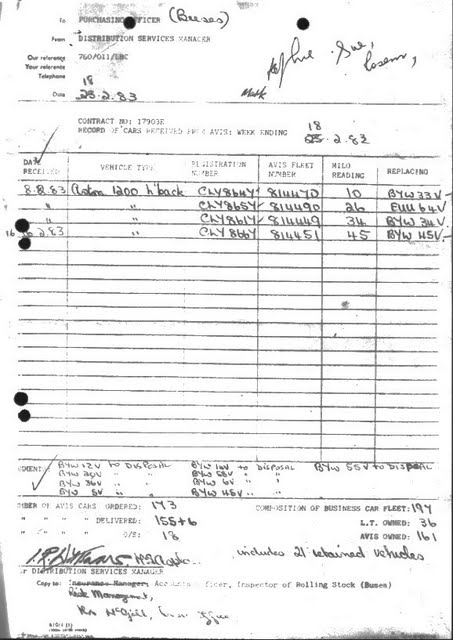 To PURCHASING OFFICER (Buses)
From DISTRIBUTION SERVICES MANAGER
Our reference 760/011/LBC
Your reference
Telephone
18
Date 25.2.83
Sue,
CONTRACT NO: 17903E
18
RECORD OF CARS RECEIVED FROM AVIS: WEEK ENDING 25.2.83
DATE RECEIVED VEHICLE TYPE REGISTRATION NUMBER AVIS FLEET NUMBER MILO READING REPLACING
8.2.83 Astra 1200 h'back CLY864Y 814470 10 BYW 33V
" " CLY865Y 814490 26 EUU 64V
" " CLY861Y 814449 34 BYW 34V
16.2.83 " CLY866Y 814451 45 BYW 45V
BYW 12V to DISPOSAL BYW 16V to DISPOSAL BYW 55V to DISPOSAL
BYW 30V " " BYW 58V " "
BYW 36V " " BYW 6V " "
BYW 5V " " BYW 45V " "
NUMBER OF AVIS CARS ORDERED: 173 COMPOSITION OF BUSINESS CAR FLEET: 197
" " " " DELIVERED: 155+6 L.T. OWNED: 36
" " " " O/S: 18 AVIS OWNED: 161
includes 21 retained vehicles
DISTRIBUTION SERVICES MANAGER
Copy to: Insurance Manager, Accounts Officer, Inspector of Rolling Stock (Buses)
Risk Management,
Mr McGill,